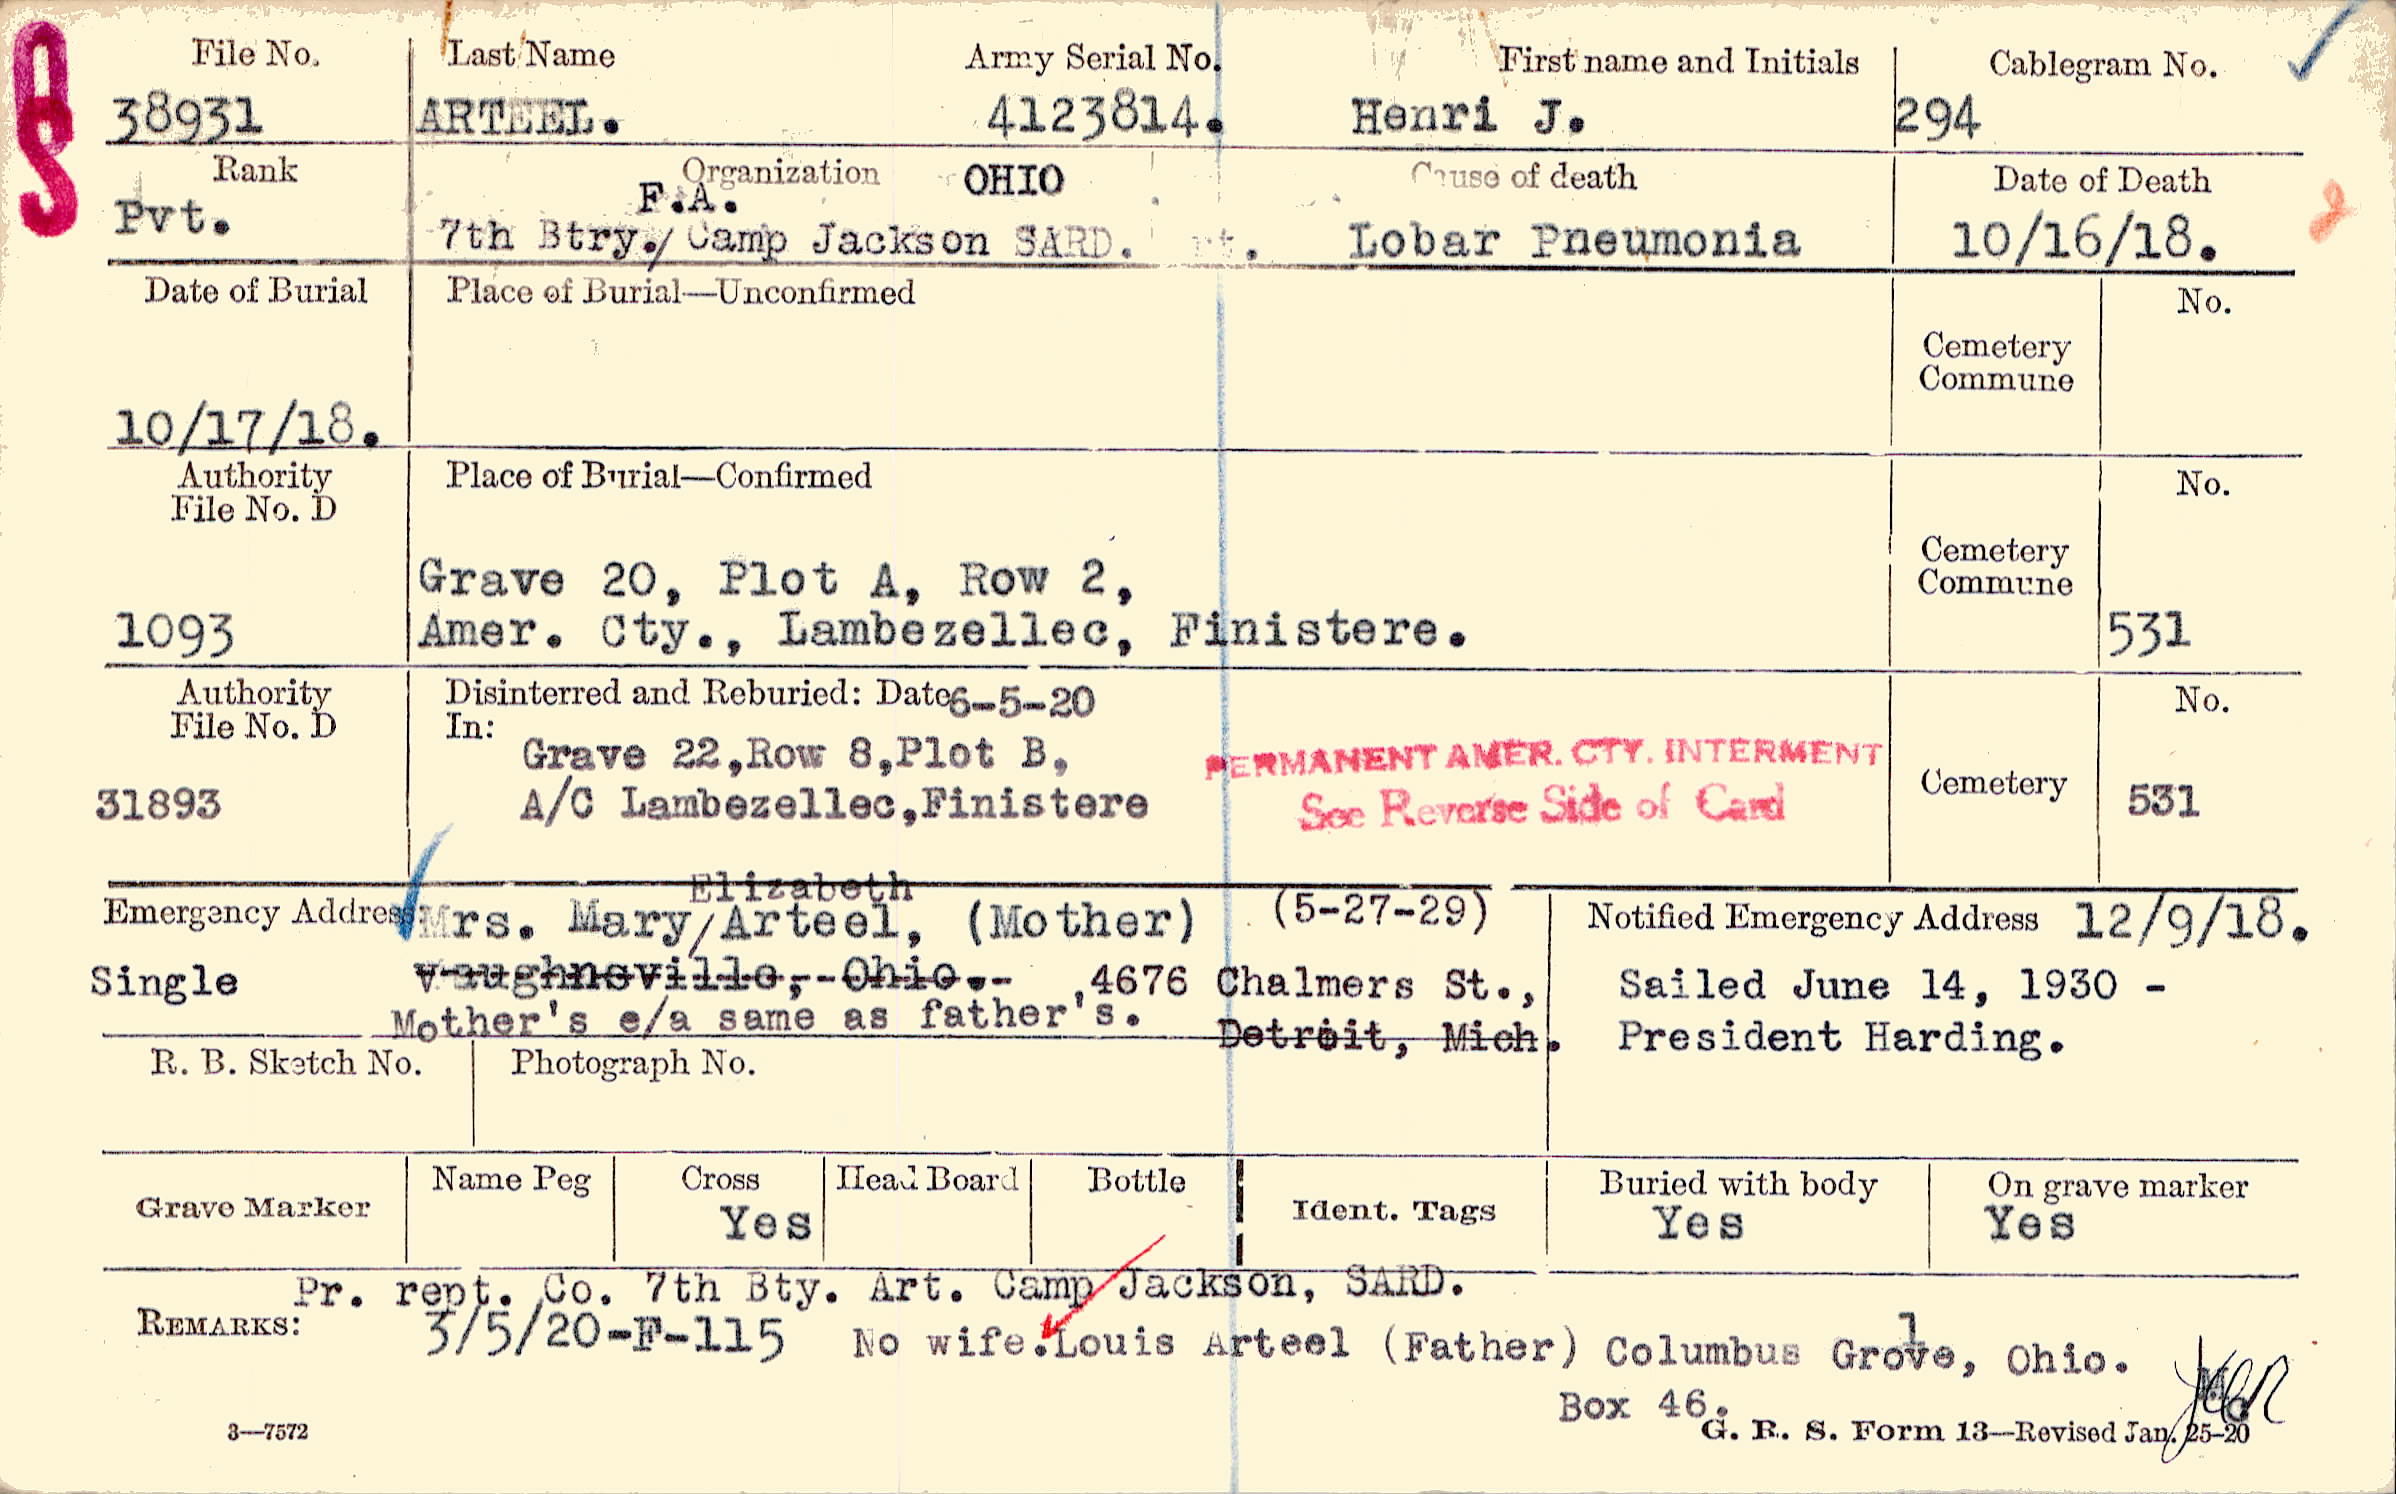 File No. Last Name Army Serial No. First name and Initials Cablegram No.
38931 ARTEEL. 4123814. Henri J. 294
Rank Organization OHIO Cause of death Date of Death
F.A.
Pvt. 7th Btry./ Camp Jackson SARD. Lobar Pneumonia 10/16/18.
Date of Burial Place of Burial—Unconfirmed No.
Cemetery
Commune
10/17/18.
Authority Place of Burial—Confirmed No.
File No. D
Cemetery
Commune
Grave 20, Plot A, Row 2,
1093 Amer. Cty., Lambezellec, Finistere. 531
Authority Disinterred and Reburied: Date 6-5-20 No.
File No. D In:
Grave 22,Row 8,Plot B, PERMANENT AMER. CTY. INTERMENT
Cemetery
31893 A/C Lambezellec,Finistere See Reverse Side of Card 531
Elizabeth
Emergency Address Mrs. Mary/Arteel, (Mother) (5-27-29) Notified Emergency Address 12/9/18.
Single Vaughnsville, Ohio. 4676 Chalmers St., Sailed June 14, 1930 -
Mother's e/a same as father's. Detroit, Mich. President Harding.
R. B. Sketch No. Photograph No.
Grave Marker Name Peg Cross Head Board Bottle Ident. Tags Buried with body On grave marker
Yes Yes Yes
Pr. rept. Co. 7th Bty. Art. Camp Jackson, SARD.
REMARKS: 3/5/20-F-115 No wife. Louis Arteel (Father) Columbus Grove, Ohio.
Box 46.
3—7572 G. R. S. Form 13—Revised Jan. 25-20